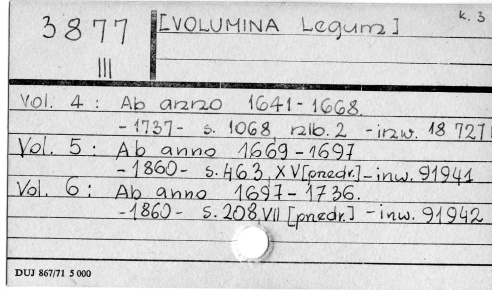 k. 3
3877 [VOLUMINA Legum]
III
Vol. 4 : Ab anno 1641-1668.
-1737- s. 1068, nlb. 2 -inw. 18 727
Vol. 5 : Ab anno 1669-1697
-1860- s. 463, XV [przedr.] -inw. 91941
Vol. 6 : Ab anno 1697-1736.
-1860- s. 208, VII [przedr.] -inw. 91942
DUJ 867/71 5 000